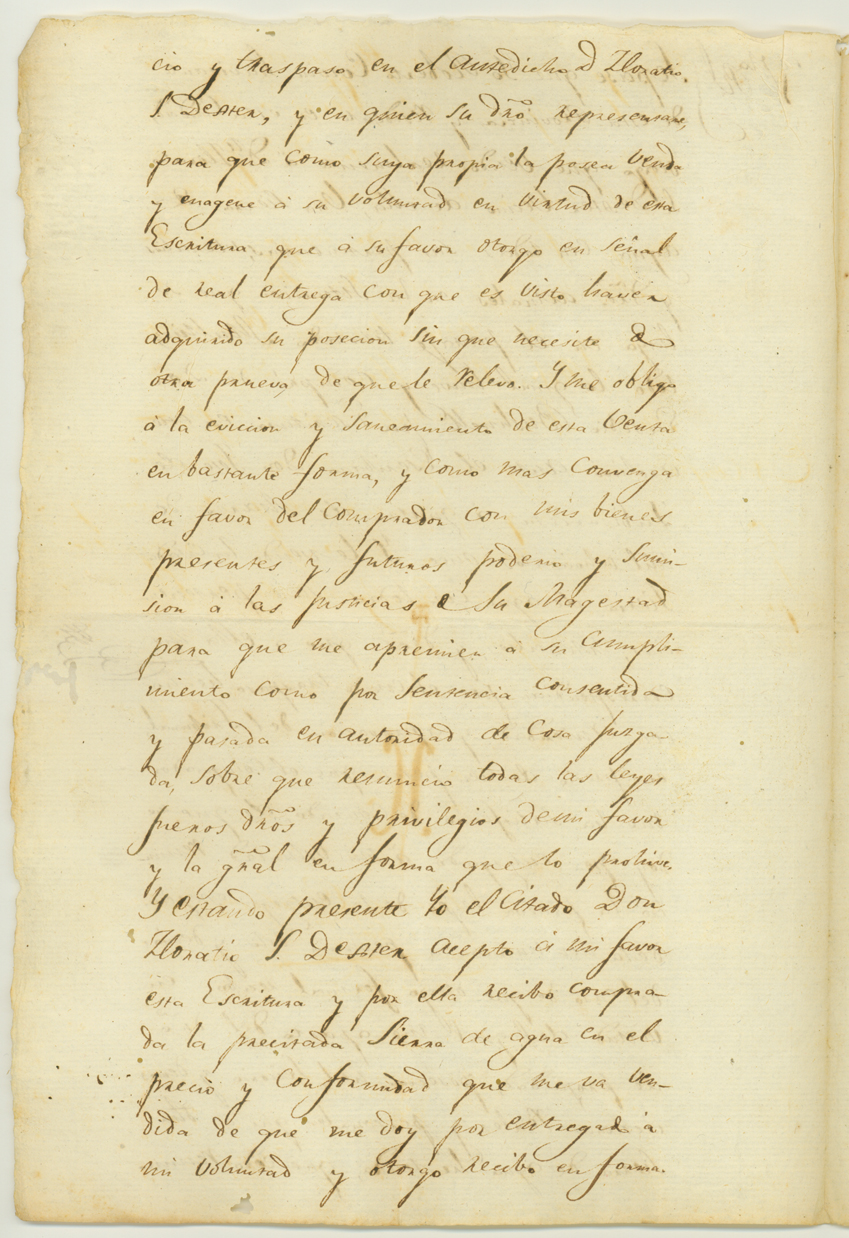 cio y traspaso en el Antedicho D Horatio
S. Dexter, y en quien su dr̃o representare,
para que como suya propia la posea Venda
y enagene á su voluntad en virtud de esta
Escritura que á su favor otorgo en señal
de real entrega con que es visto haver
adquirido su posecion sin que necesite de
otra prueva, de que le relevo. Y me obligo
á la eviccion y saneamiento de esta Venta
en bastante forma, y como mas Convenga
en favor del Comprador con mis bienes
presentes y futuros poderio y sumi-
sion á las Justicias de Su Magestad
para que me apremien á su Cumpli-
miento como por Sentencia consentida
y pasada en autoridad de Cosa Juzga-
da, sobre que renuncio todas las leyes
fueros dr̃os y privilegios de mi favor
y la gr̃al en forma que lo prohive.
Y estando presente Yo el Citado Don
Horatio S. Dexter acepto á mi favor
esta Escritura y por ella recibo compra-
da la precitada Sierra de agua en el
precio y Conformidad que me va ven-
dida de que me doy por entregado á
mi voluntad y otorgo recibo en forma.